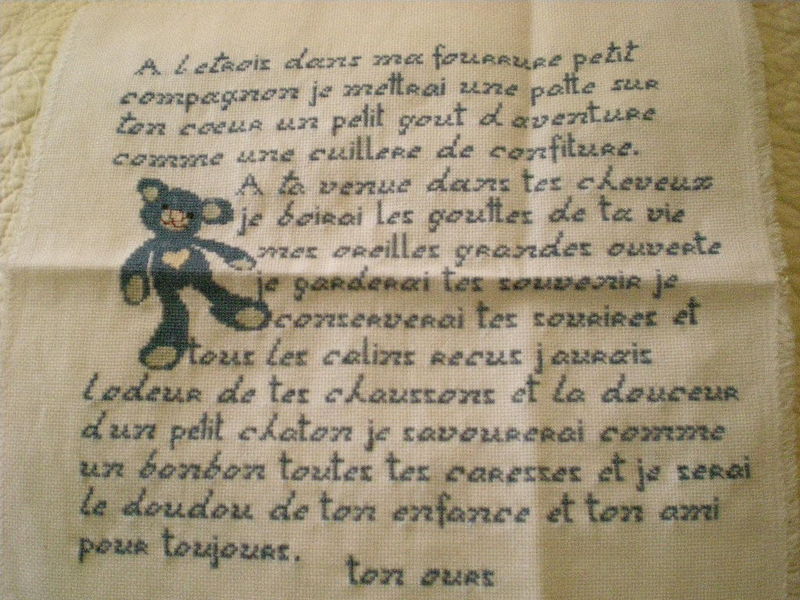 A letrois dans ma fourrure petit
compagnon je mettrai une patte sur
ton cœur un petit gout d aventure
comme une cuillere de confiture.
A ta venue dans tes cheveux
je boirai les gouttes de ta vie
mes oreilles grandes ouverte
je garderai tes souvenir je
conserverai tes sourires et
tous les calins recus j aurais
lodeur de tes chaussons et la douceur
dun petit chaton je savourerai comme
un bonbon toutes tes caresses et je serai
le doudou de ton enfance et ton ami
pour toujours.
ton ours